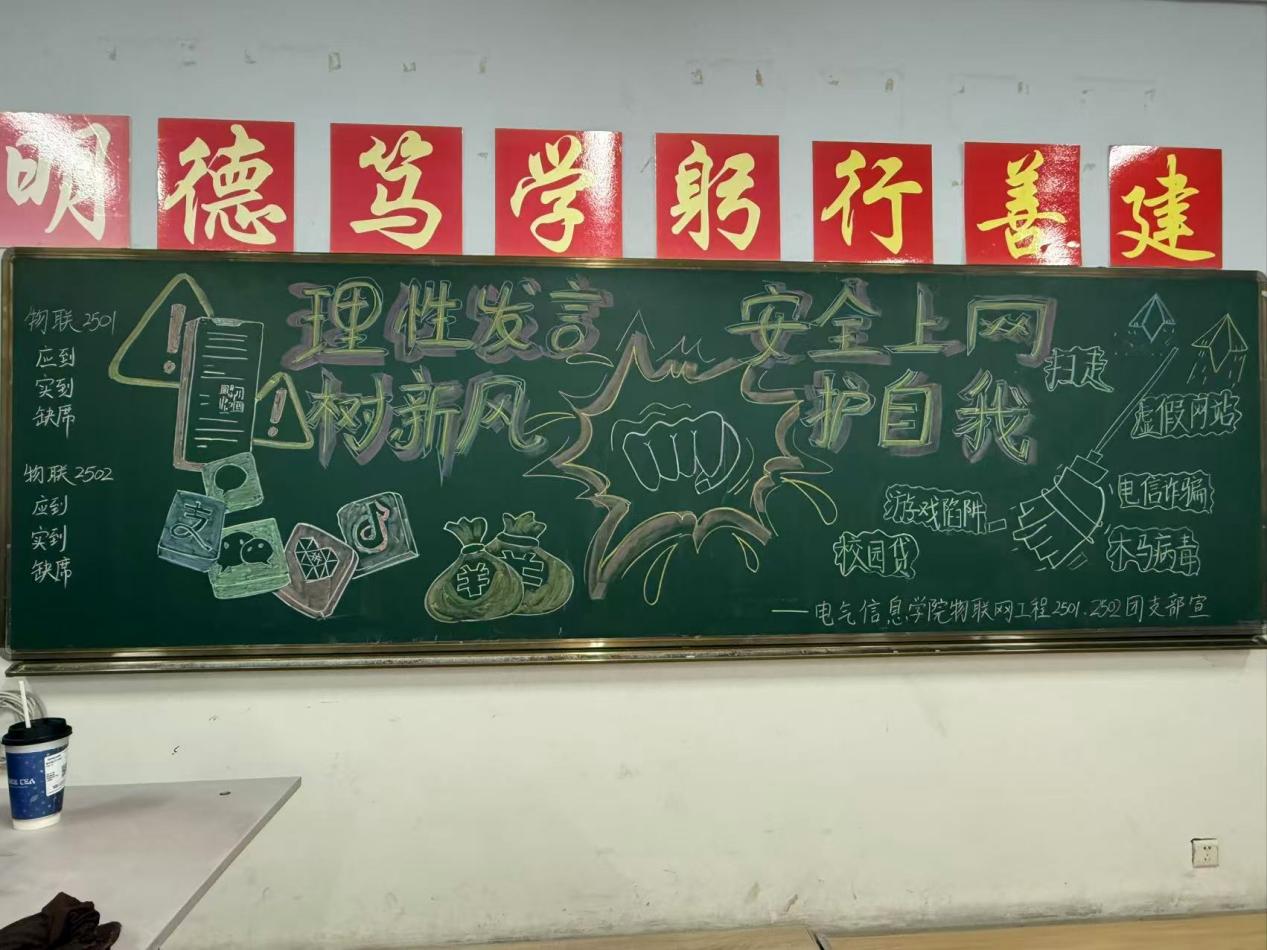 明德笃学躬行善建
理性发言 安全上网
树新风 护自我
物联2501
应到
实到
缺席
物联2502
应到
实到
缺席
支
扫走
虚假网站
电信诈骗
游戏陷阱
木马病毒
校园贷
——电气信息学院物联网工程2501.2502团支部宣